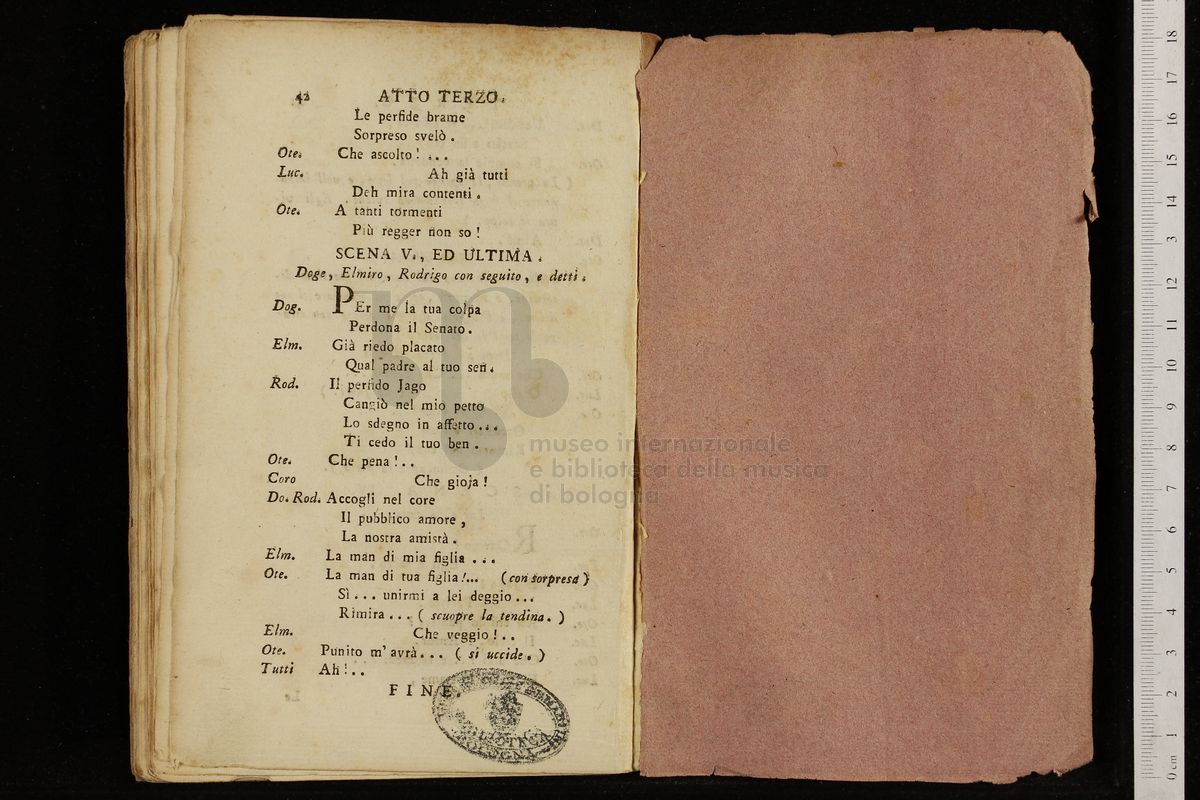 42 ATTO TERZO.
Le perfide brame
Sorpreso svelò.
Ote. Che ascolto! ...
Luc. Ah già tutti
Deh mira contenti.
Ote. A tanti tormenti
Più regger non so!
SCENA V., ED ULTIMA.
Doge, Elmiro, Rodrigo con seguito, e detti.
Dog. PEr me la tua colpa
Perdona il Senato.
Elm. Già riedo placato
Qual padre al tuo sen.
Rod. Il perfido Jago
Cangiò nel mio petto
Lo sdegno in affetto...
Ti cedo il tuo ben.
Ote. Che pena!..
Coro Che gioja!
Do. Rod. Accogli nel core
Il pubblico amore,
La nostra amistà.
Elm. La man di mia figlia ...
Ote. La man di tua figlia!... (con sorpresa)
Sì... unirmi a lei deggio...
Rimira... (scuopre la tendina.)
Elm. Che veggio!..
Ote. Punito m'avrà... (si uccide.)
Tutti Ah!..
FINE.
museo internazionale
e biblioteca della musica
di bologna
BOLOGNA
0 cm 1 2 3 4 5 6 7 8 9 10 11 12 13 14 15 16 17 18